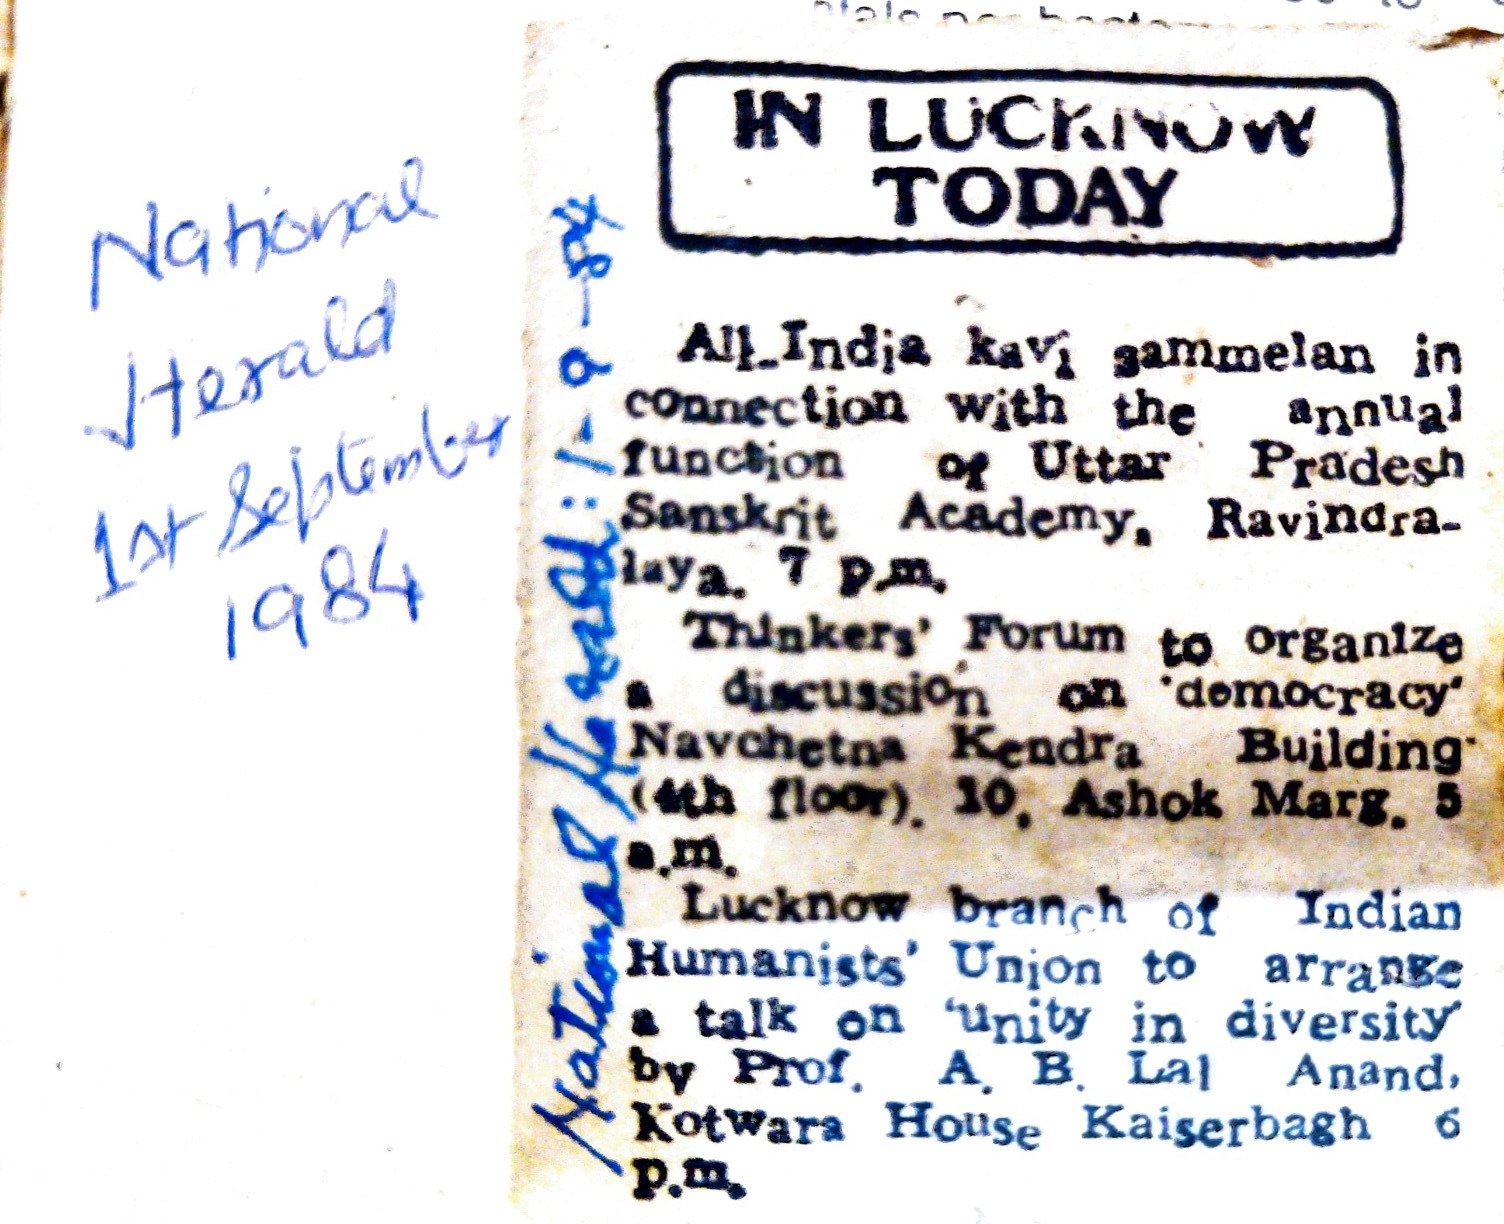 National
Herald
1st September
1984
National Herald: 1-9-84
IN LUCKNOW
TODAY
All-India kavi sammelan in
connection with the annual
function of Uttar Pradesh
Sanskrit Academy, Ravindra-
laya. 7 p.m.
Thinkers' Forum to organize
a discussion on 'democracy'
Navchetna Kendra Building
(4th floor). 10, Ashok Marg. 5
a.m.
Lucknow branch of Indian
Humanists' Union to arrange
a talk on 'unity in diversity'
by Prof. A. B. Lal Anand,
Kotwara House Kaiserbagh 6
p.m.